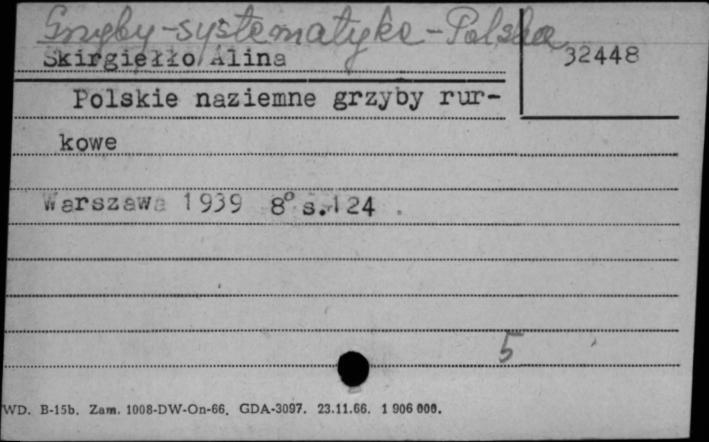 Grzyby-systematyka-Polska
Skirgiełło Alina
32448
Polskie naziemne grzyby rur-
kowe
Warszawa 1939 8° s.124
5
WD. B-15b. Zam. 1008-DW-On-66. GDA-3097. 23.11.66. 1 906 000.